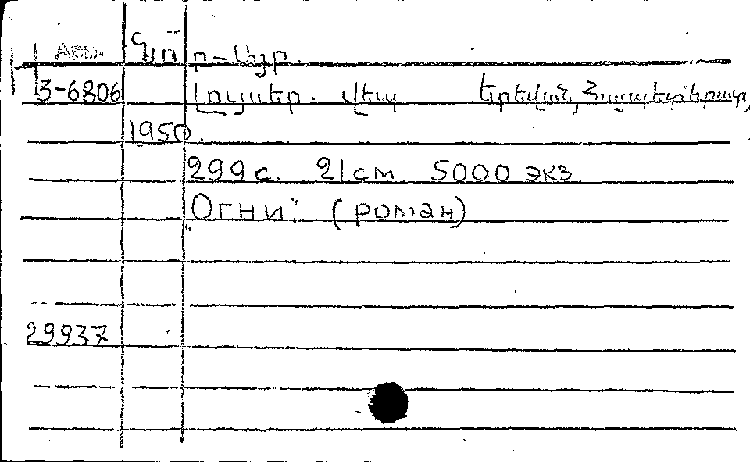 Арм. Գոռ ր-Լեյր.
3-6806 Լույսեր. վեպ Երեվան, Հայպետհրատ,
1950.
299 с. 21 см 5000 экз
"Огни" (роман)
29937